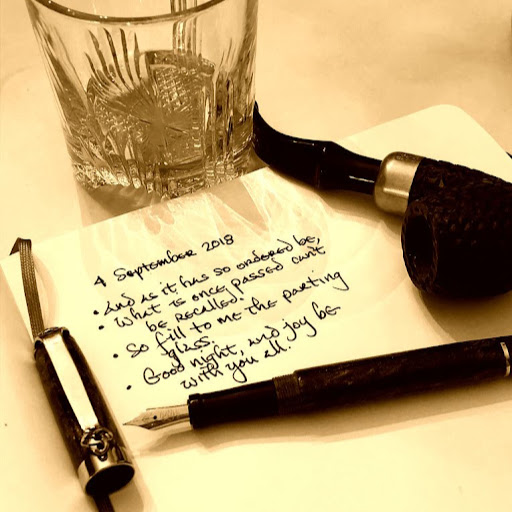 4 September 2018
• And as it has so ordered be,
• What is once passed can't
be recalled!
• So fill to me the parting
glass.
• Good night, and joy be
with you all.